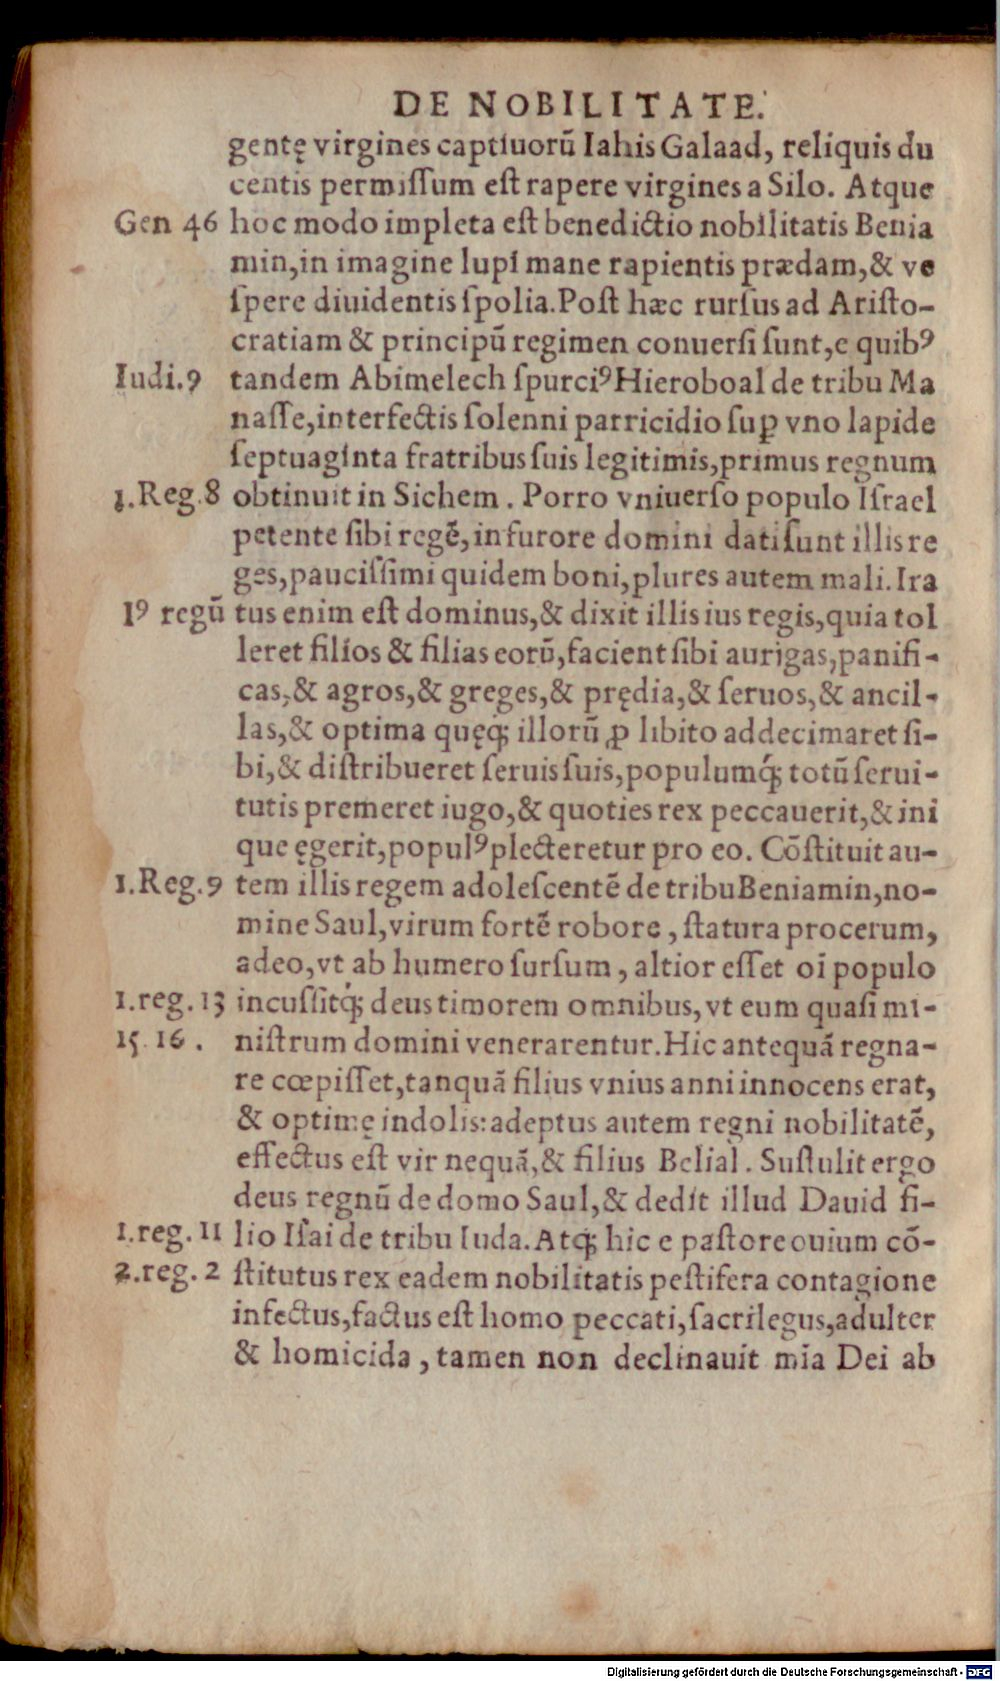 DE NOBILITATE.
gentę virgines captiuorũ Iahis Galaad, reliquis du
centis permiſſum eſt rapere virgines a Silo. Atque
Gen 46 hoc modo impleta eſt benedictio nobilitatis Benia
min,in imagine lupi mane rapientis prædam,& ve
ſpere diuidentis ſpolia.Poſt hæc rurſus ad Ariſto-
cratiam & principũ regimen conuerſi ſunt,e quibꝰ
Iudi.9 tandem Abimelech ſpurciꝰ Hieroboal de tribu Ma
naſſe,interfectis ſolenni parricidio ſuꝑ vno lapide
ſeptuaginta fratribus ſuis legitimis,primus regnum
1.Reg.8 obtinuit in Sichem. Porro vniuerſo populo Iſrael
petente ſibi regẽ,in furore domini dati ſunt illis re
ges,pauciſſimi quidem boni,plures autem mali.Ira
Iꝰ regũ tus enim eſt dominus,& dixit illis ius regis,quia tol
leret filios & filias eorũ,facient ſibi aurigas,panifi-
cas,& agros,& greges,& prędia,& ſeruos,& ancil-
las,& optima quęq; illorũ ꝓ libito addecimaret ſi-
bi,& diſtribueret ſeruis ſuis,populumq́; totũ ſerui-
tutis premeret iugo,& quoties rex peccauerit,& ini
que ęgerit,populꝰ plecteretur pro eo. Cõſtituit au-
1.Reg.9 tem illis regem adoleſcentẽ de tribu Beniamin,no-
mine Saul,virum fortẽ robore, ſtatura procerum,
adeo,vt ab humero ſurſum, altior eſſet oĩ populo
1.reg. 13 incuſſitq́; deus timorem omnibus,vt eum quaſi mi-
15. 16. niſtrum domini venerarentur.Hic antequã regna-
re cœpiſſet,tanquã filius vnius anni innocens erat,
& optimę indolis:adeptus autem regni nobilitatẽ,
effectus eſt vir nequã,& filius Belial. Suſtulit ergo
deus regnũ de domo Saul,& dedit illud Dauid fi-
1.reg. 11 lio Iſai de tribu Iuda.Atq; hic e paſtore ouium cõ-
2.reg. 2 ſtitutus rex eadem nobilitatis peſtifera contagione
infectus,factus eſt homo peccati,ſacrilegus,adulter
& homicida, tamen non declinauit mĩa Dei ab
Digitalisierung gefördert durch die Deutsche Forschungsgemeinschaft - DFG